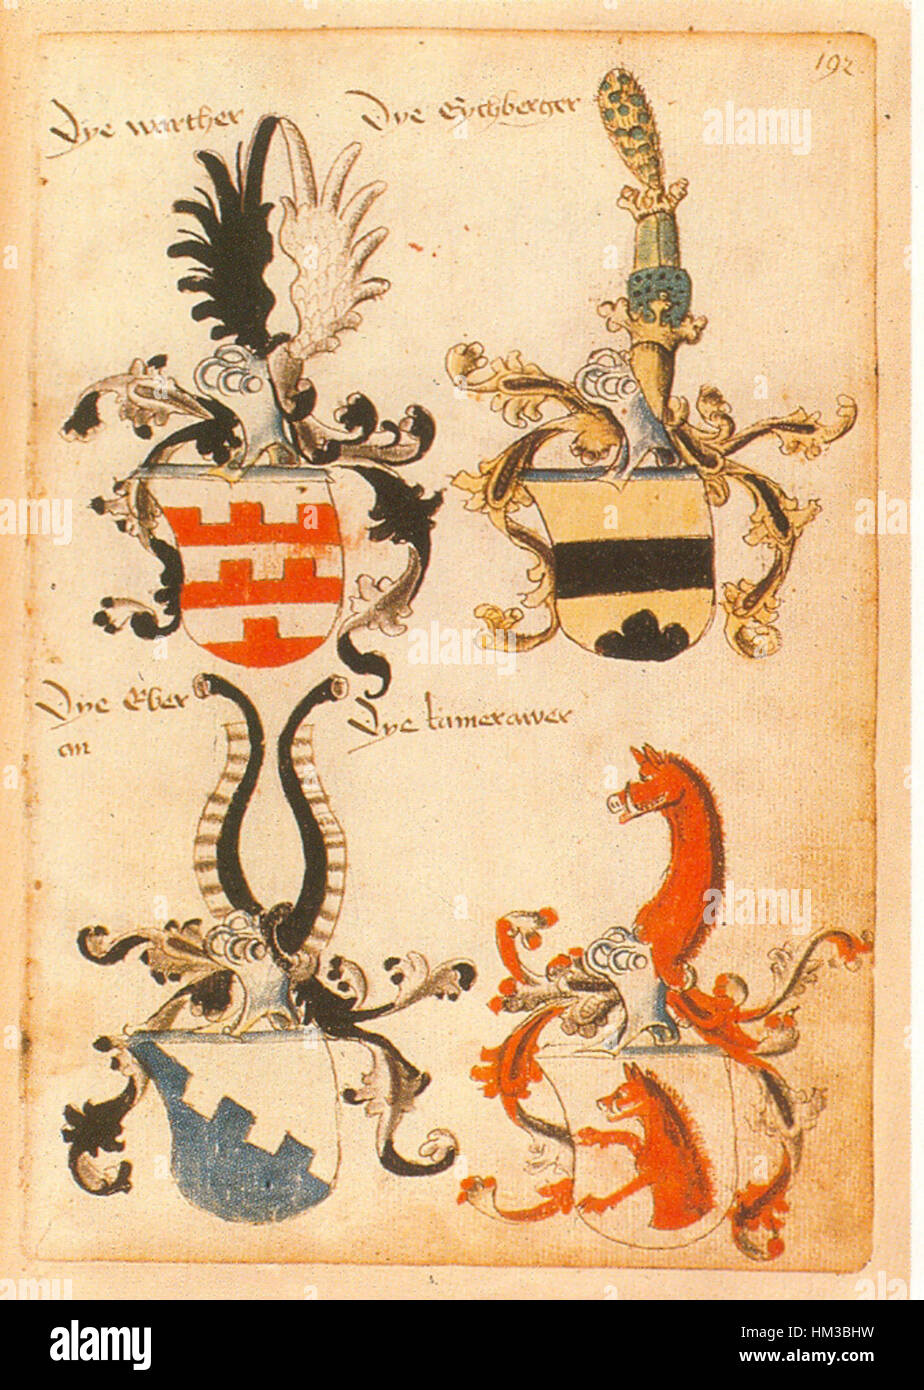 192
Dye warther
Dye Eychberger
Dye Eber
an
Dye kamerawer
alamy stock photo
HM3BHW
www.alamy.com